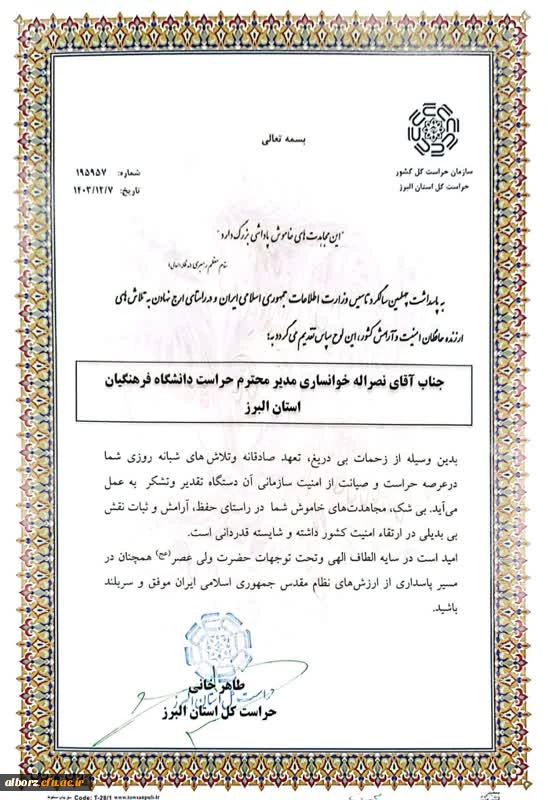 بسمه تعالی
سازمان حراست کل کشور
حراست کل استان البرز
شماره: ۱۹۵۹۵۷
تاریخ: ۱۴۰۳/۱۲/۷
"این مجاهدت‌های خاموش پاداشی بزرگ دارد"
مقام معظم رهبری (مدظله العالی)
به پاسداشت چهلمین سالگرد تاسیس وزارت اطلاعات جمهوری اسلامی ایران و در راستای ارج نهادن به تلاش های
ارزنده حافظان امنیت و آرامش کشور، این لوح سپاس تقدیم می گردد به:
جناب آقای نصراله خوانساری مدیر محترم حراست دانشگاه فرهنگیان
استان البرز
بدین وسیله از زحمات بی دریغ، تعهد صادقانه وتلاش های شبانه روزی شما
درعرصه حراست و صیانت از امنیت سازمانی آن دستگاه تقدیر وتشکر به عمل
می‌آید. بی شک، مجاهدت‌های خاموش شما در راستای حفظ، آرامش و ثبات نقش
بی بدیلی در ارتقاء امنیت کشور داشته و شایسته قدردانی است.
امید است در سایه الطاف الهی وتحت توجهات حضرت ولی عصر(عج) همچنان در
مسیر پاسداری از ارزش‌های نظام مقدس جمهوری اسلامی ایران موفق و سربلند
باشید.
طاهرخانی
حراست کل استان البرز
alborz.cfu.ac.ir
Code: T-28/1 www.towsanpub.ir